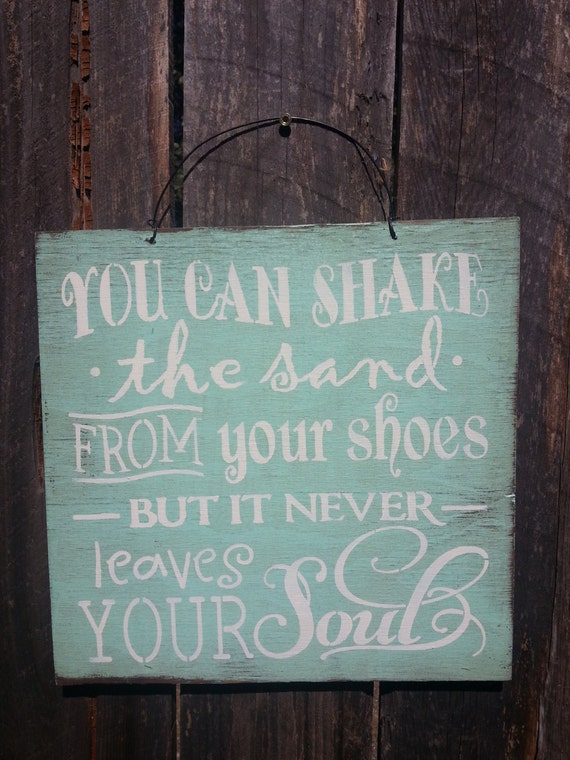 YOU CAN SHAKE
• the sand •
FROM your shoes
— BUT IT NEVER —
leaves
YOUR Soul